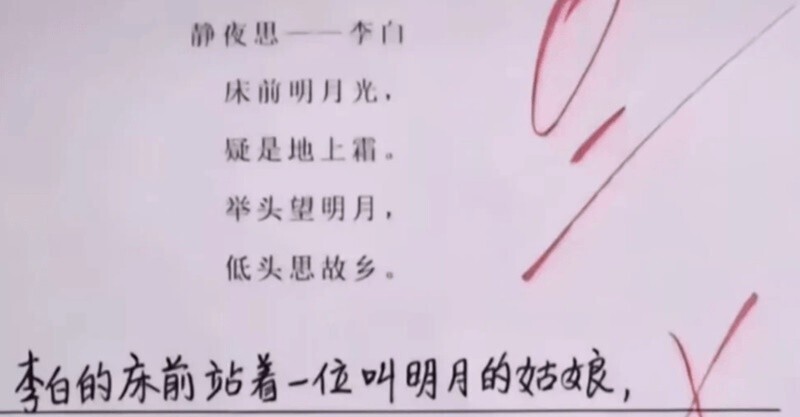 静夜思——李白
床前明月光，
疑是地上霜。
举头望明月，
低头思故乡。
李白的床前站着一位叫明月的姑娘，